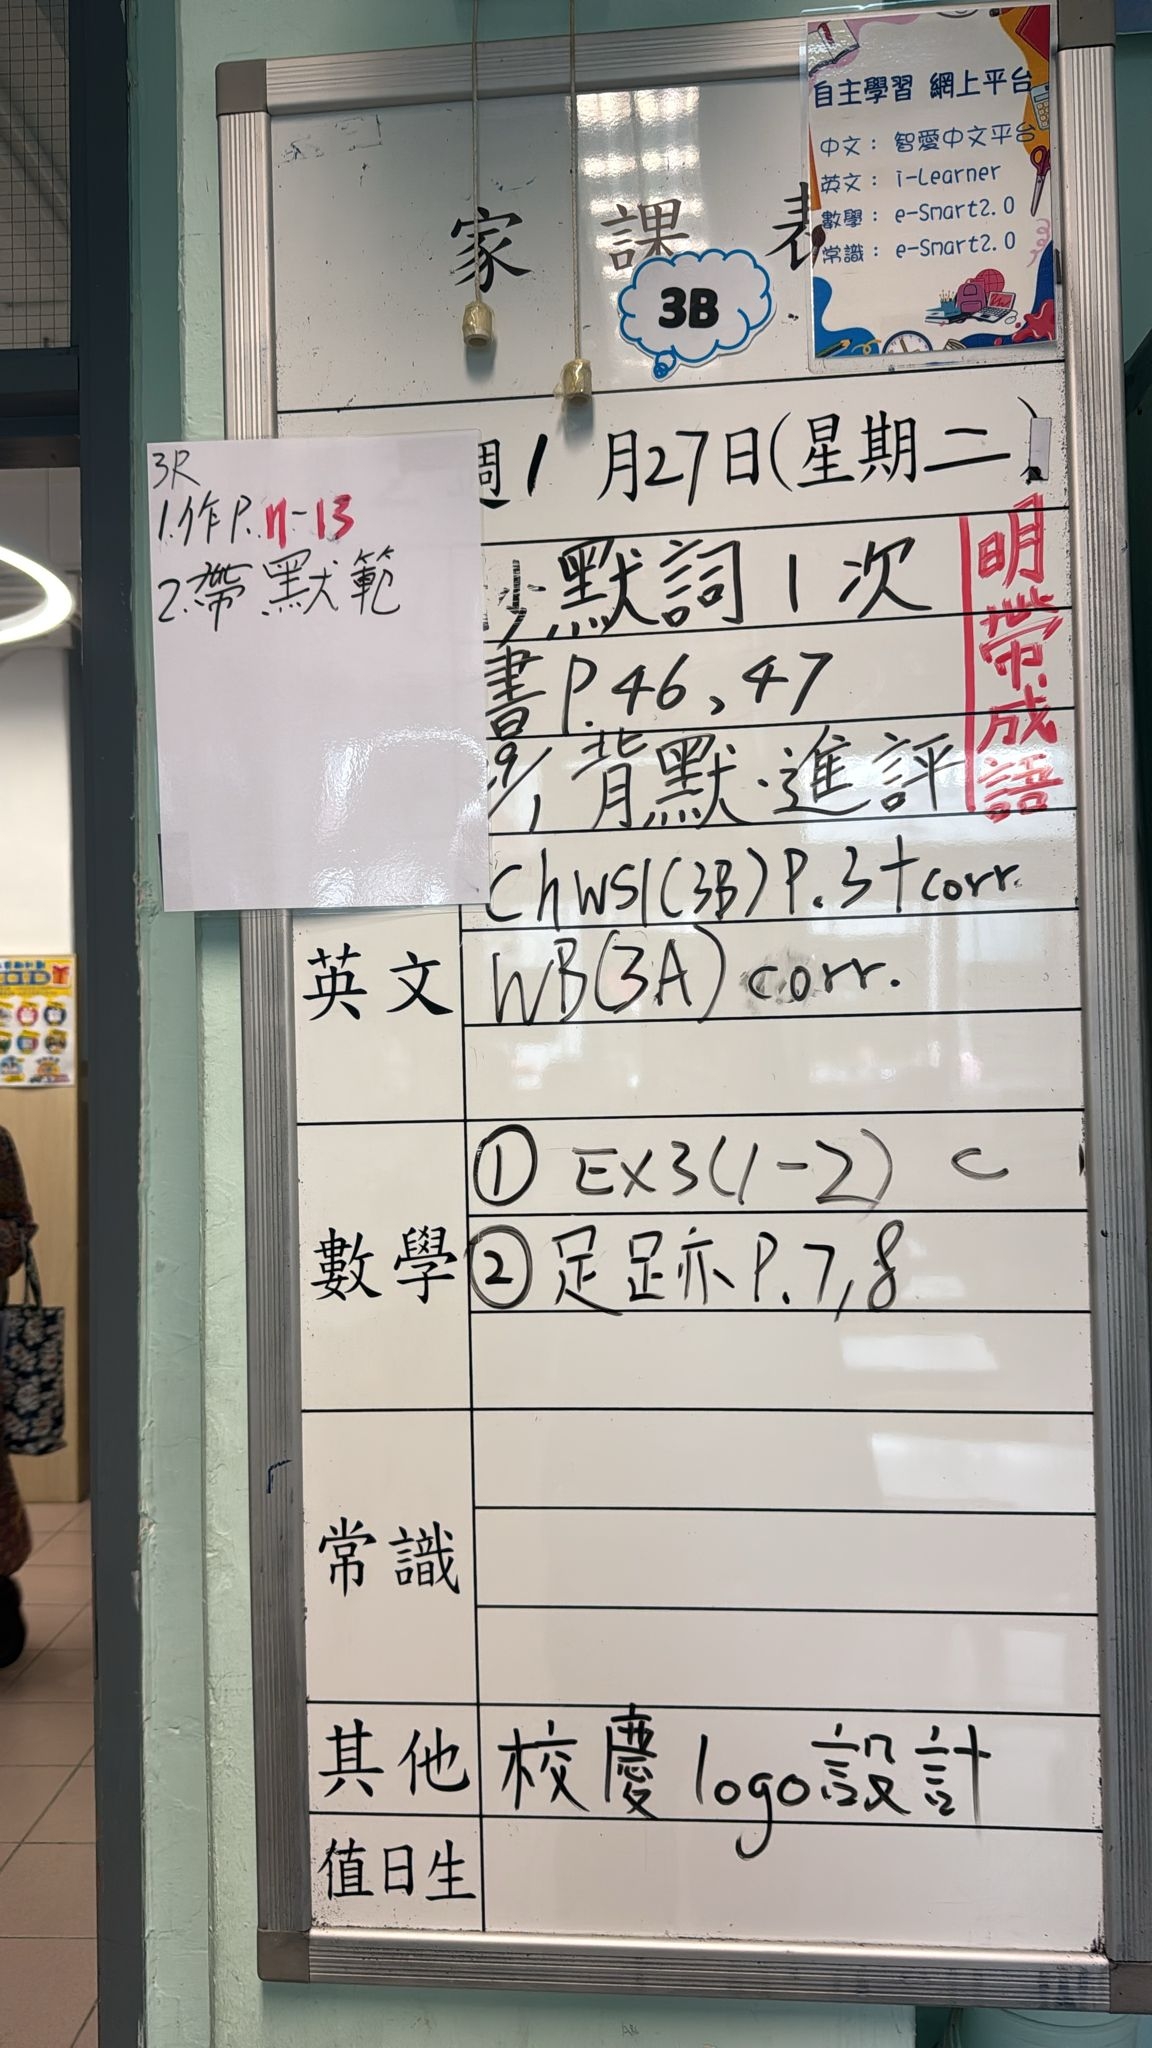 自主學習 網上平台
中文： 智愛中文平台
英文： i-Learner
數學： e-Smart2.0
常識： e-Smart2.0
家課表
3B
週1月27日(星期二)
3R
1.作P.11-13
2.帶默範
默詞1次
書P.46、47
背默.進評
明帶成語
ChWS1(3B)P.3+corr.
英文
WB(3A) corr.
數學
① EX3(1-2) C
② 足跡P.7,8
常識
其他
校慶logo設計
值日生